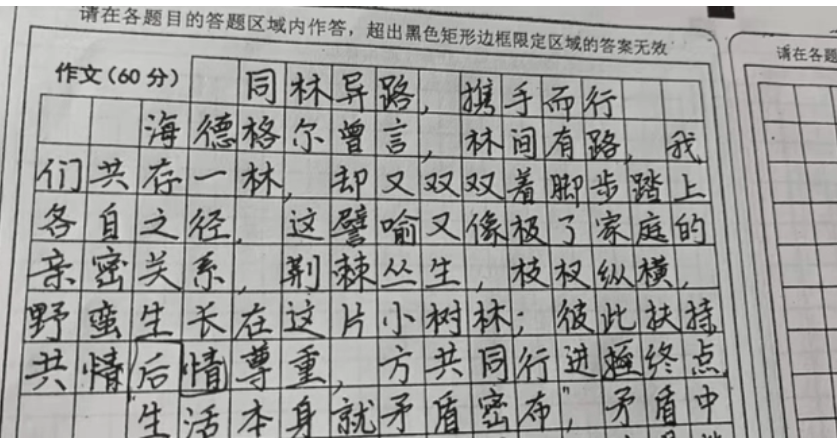 请在各题目的答题区域内作答，超出黑色矩形边框限定区域的答案无效
请在各题
作文(60分)
同林异路，携手而行
海德格尔曾言，林间有路，我
们共存一林，却又双双着脚步踏上
各自之径，这譬喻又像极了家庭的
亲密关系，荆棘丛生，枝杈纵横，
野蛮生长在这片小树林；彼此扶持
共情后情尊重，方共同行进 终点。
"生活本身就矛盾密布"，矛盾中